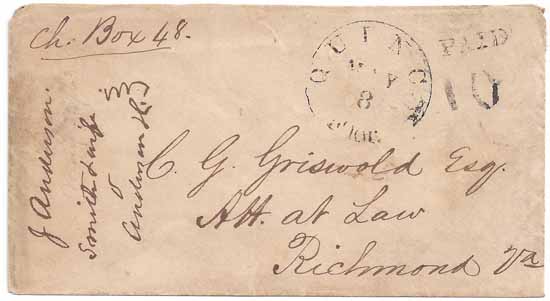 Ch. Box 48.
QUINCY
MAY
8
FLOR.
PAID
10
J Anderson.
Smith & wife
v
Anderson &
C. G. Griswold Esq.
Att. at Law
Richmond Va